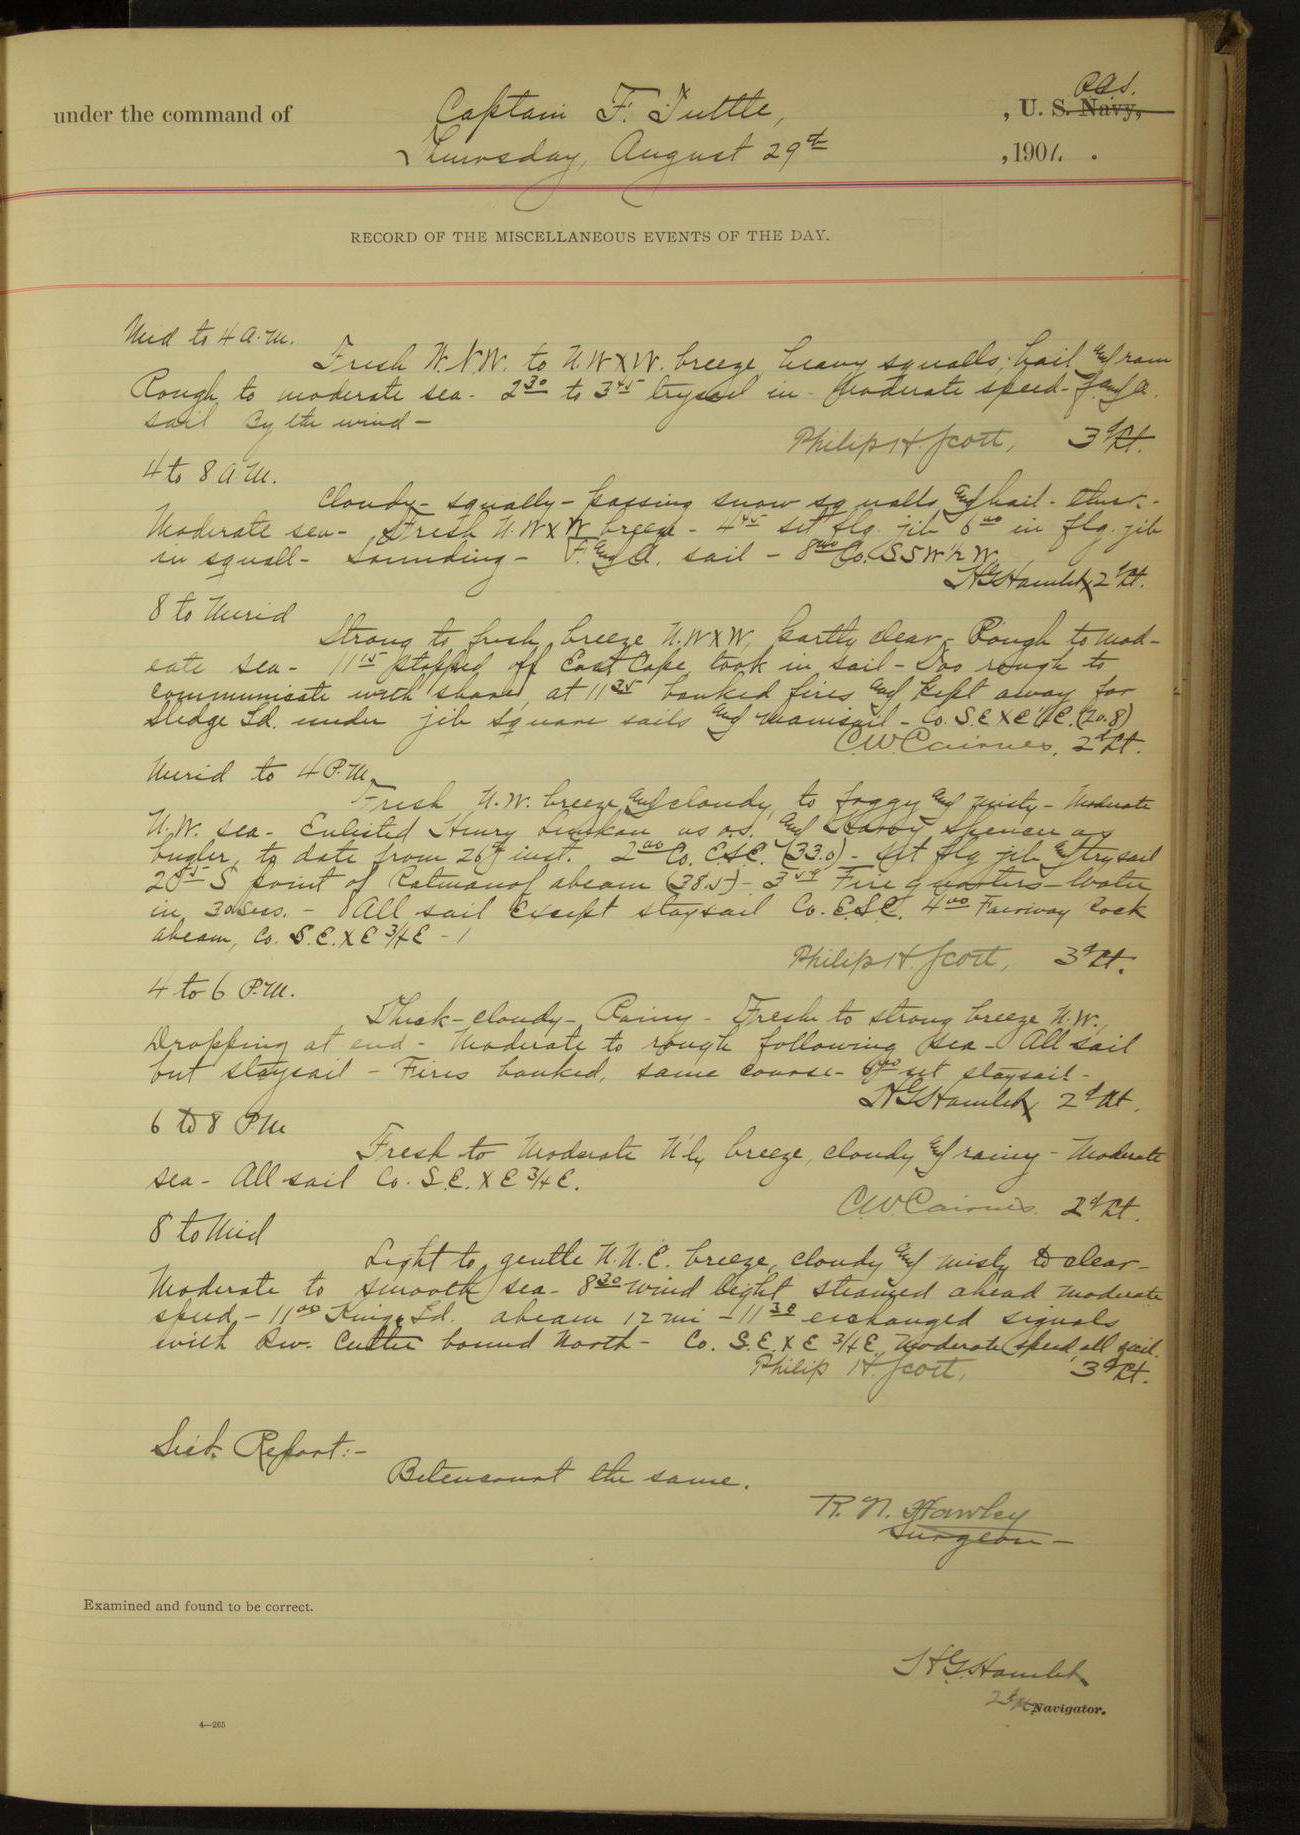 R.C.S.
under the command of Captain F. Tuttle, , U. S. Navy,
Thursday, August 29th , 1901.
RECORD OF THE MISCELLANEOUS EVENTS OF THE DAY.
Mid to 4 A.M.
Fresh W.N.W. to N.W x W. breeze, heavy squalls, hail and rain
Rough to moderate sea - 2 30 to 3 45 trysail in - Moderate speed - F. and A.
sail By the wind -
Philip H. Scott, 3d Lt.
4 to 8 A.M.
Cloudy - squally - passing snow squalls and hail -
Moderate sea - Fresh N.W x W breeze - 4 45 set flg. jib 6 00 in flg. jib
in squall - Sounding - F. and A. sail - 8 00 Co. SSW ½ W.
H G Hamlet 2d Lt.
8 to Merid
Strong to fresh breeze N.W x W, partly clear - Rough to mod-
eate sea - 11 15 stopped off East Cape, took in sail - Too rough to
communicate with shore, at 11 35 banked fires and kept away for
Sledge Id. under jib square sails and mainsail - Co. S.E x E ½ E. (20.8)
C.W. Cairnes, 2d Lt.
Merid to 4 P.M.
Fresh N.W. breeze, and cloudy, to foggy and misty - Moderate
N.W. sea - Enlisted Henry as o.s. and Spencer as
bugler, to date from 26th inst. 2 00 Co. E.S.E. (33.0) - Set flg jib and trysail
2 55 S point of Ratmanof abeam (38.5) - 3 Fire quarters - Water
in 30 secs. - All sail Except staysail Co. E.S.E. 4 00 Fairway Rock
abeam, Co. S.E. x E ¾ E -
Philip H. Scott, 3d Lt.
4 to 6 P.M.
Thick - cloudy - Rainy - Fresh to strong breeze N.W.,
Dropping at end - Moderate to rough following sea - All sail
but staysail - Fires banked, same course - 6 00 set staysail -
H G Hamlet 2d Lt.
6 to 8 P.M
Fresh to Moderate N'ly breeze, cloudy and rainy - Moderate
sea - All sail Co. S.E. x E ¾ E.
C.W. Cairnes. 2d Lt.
8 to Mid
Light to gentle N.N.E. breeze, cloudy and misty to clear -
Moderate to smooth sea - 8 30 wind light steamed ahead moderate
speed - 11 00 Kings Id. abeam 12 mi - 11 38 exchanged signals
with Rev. Cutter bound North - Co. S.E. x E ¾ E. Moderate speed, all sail.
Philip H. Scott, 3d Lt.
Sick Report:-
Betencourt the same.
R. N. Hawley
Surgeon -
Examined and found to be correct.
H G Hamlet
2d Lt. Navigator.
4—265